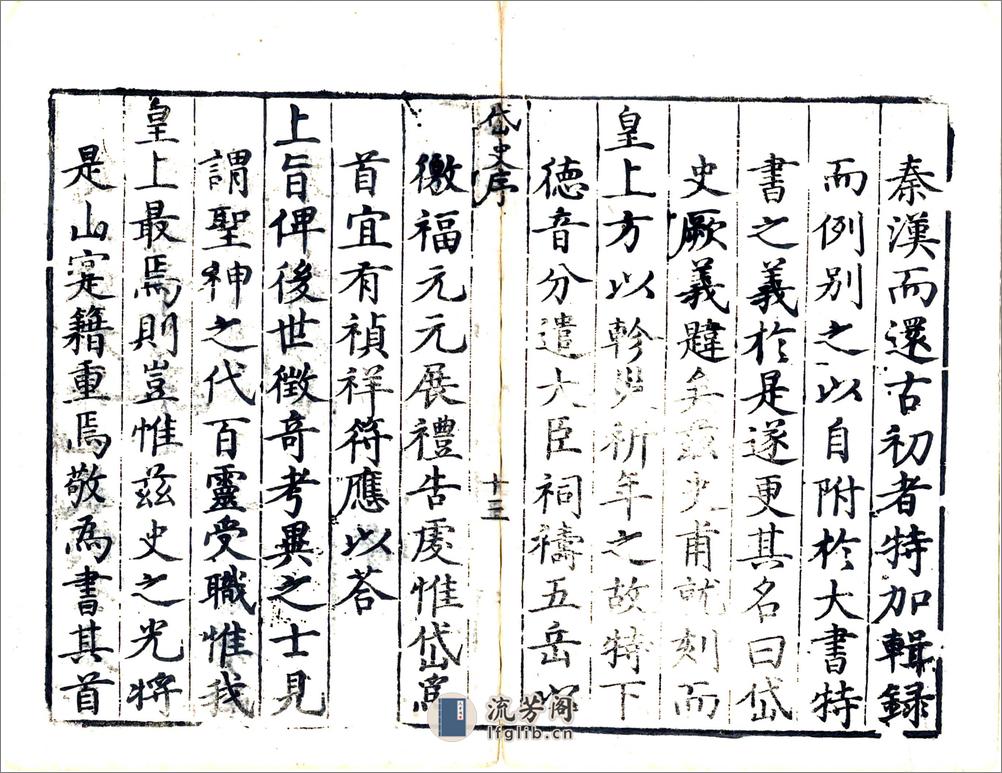 秦漢而還古初者特加輯録
而例別之以自附於大書特
書之義於是遂更其名曰岱
史厥義韙矣茲史甫就刻而
皇上方以軫災祈年之故特下
德音分遣大臣祠禱五岳
岱史序
十三
徼福元元展禮告虔惟岱爲
首宜有禎祥符應以荅
上旨俾後世徴竒考異之士見
謂聖神之代百靈受職惟我
皇上最焉則豈惟茲史之光將
是山寔籍重焉敬爲書其首
流芳阁
lfglib.cn